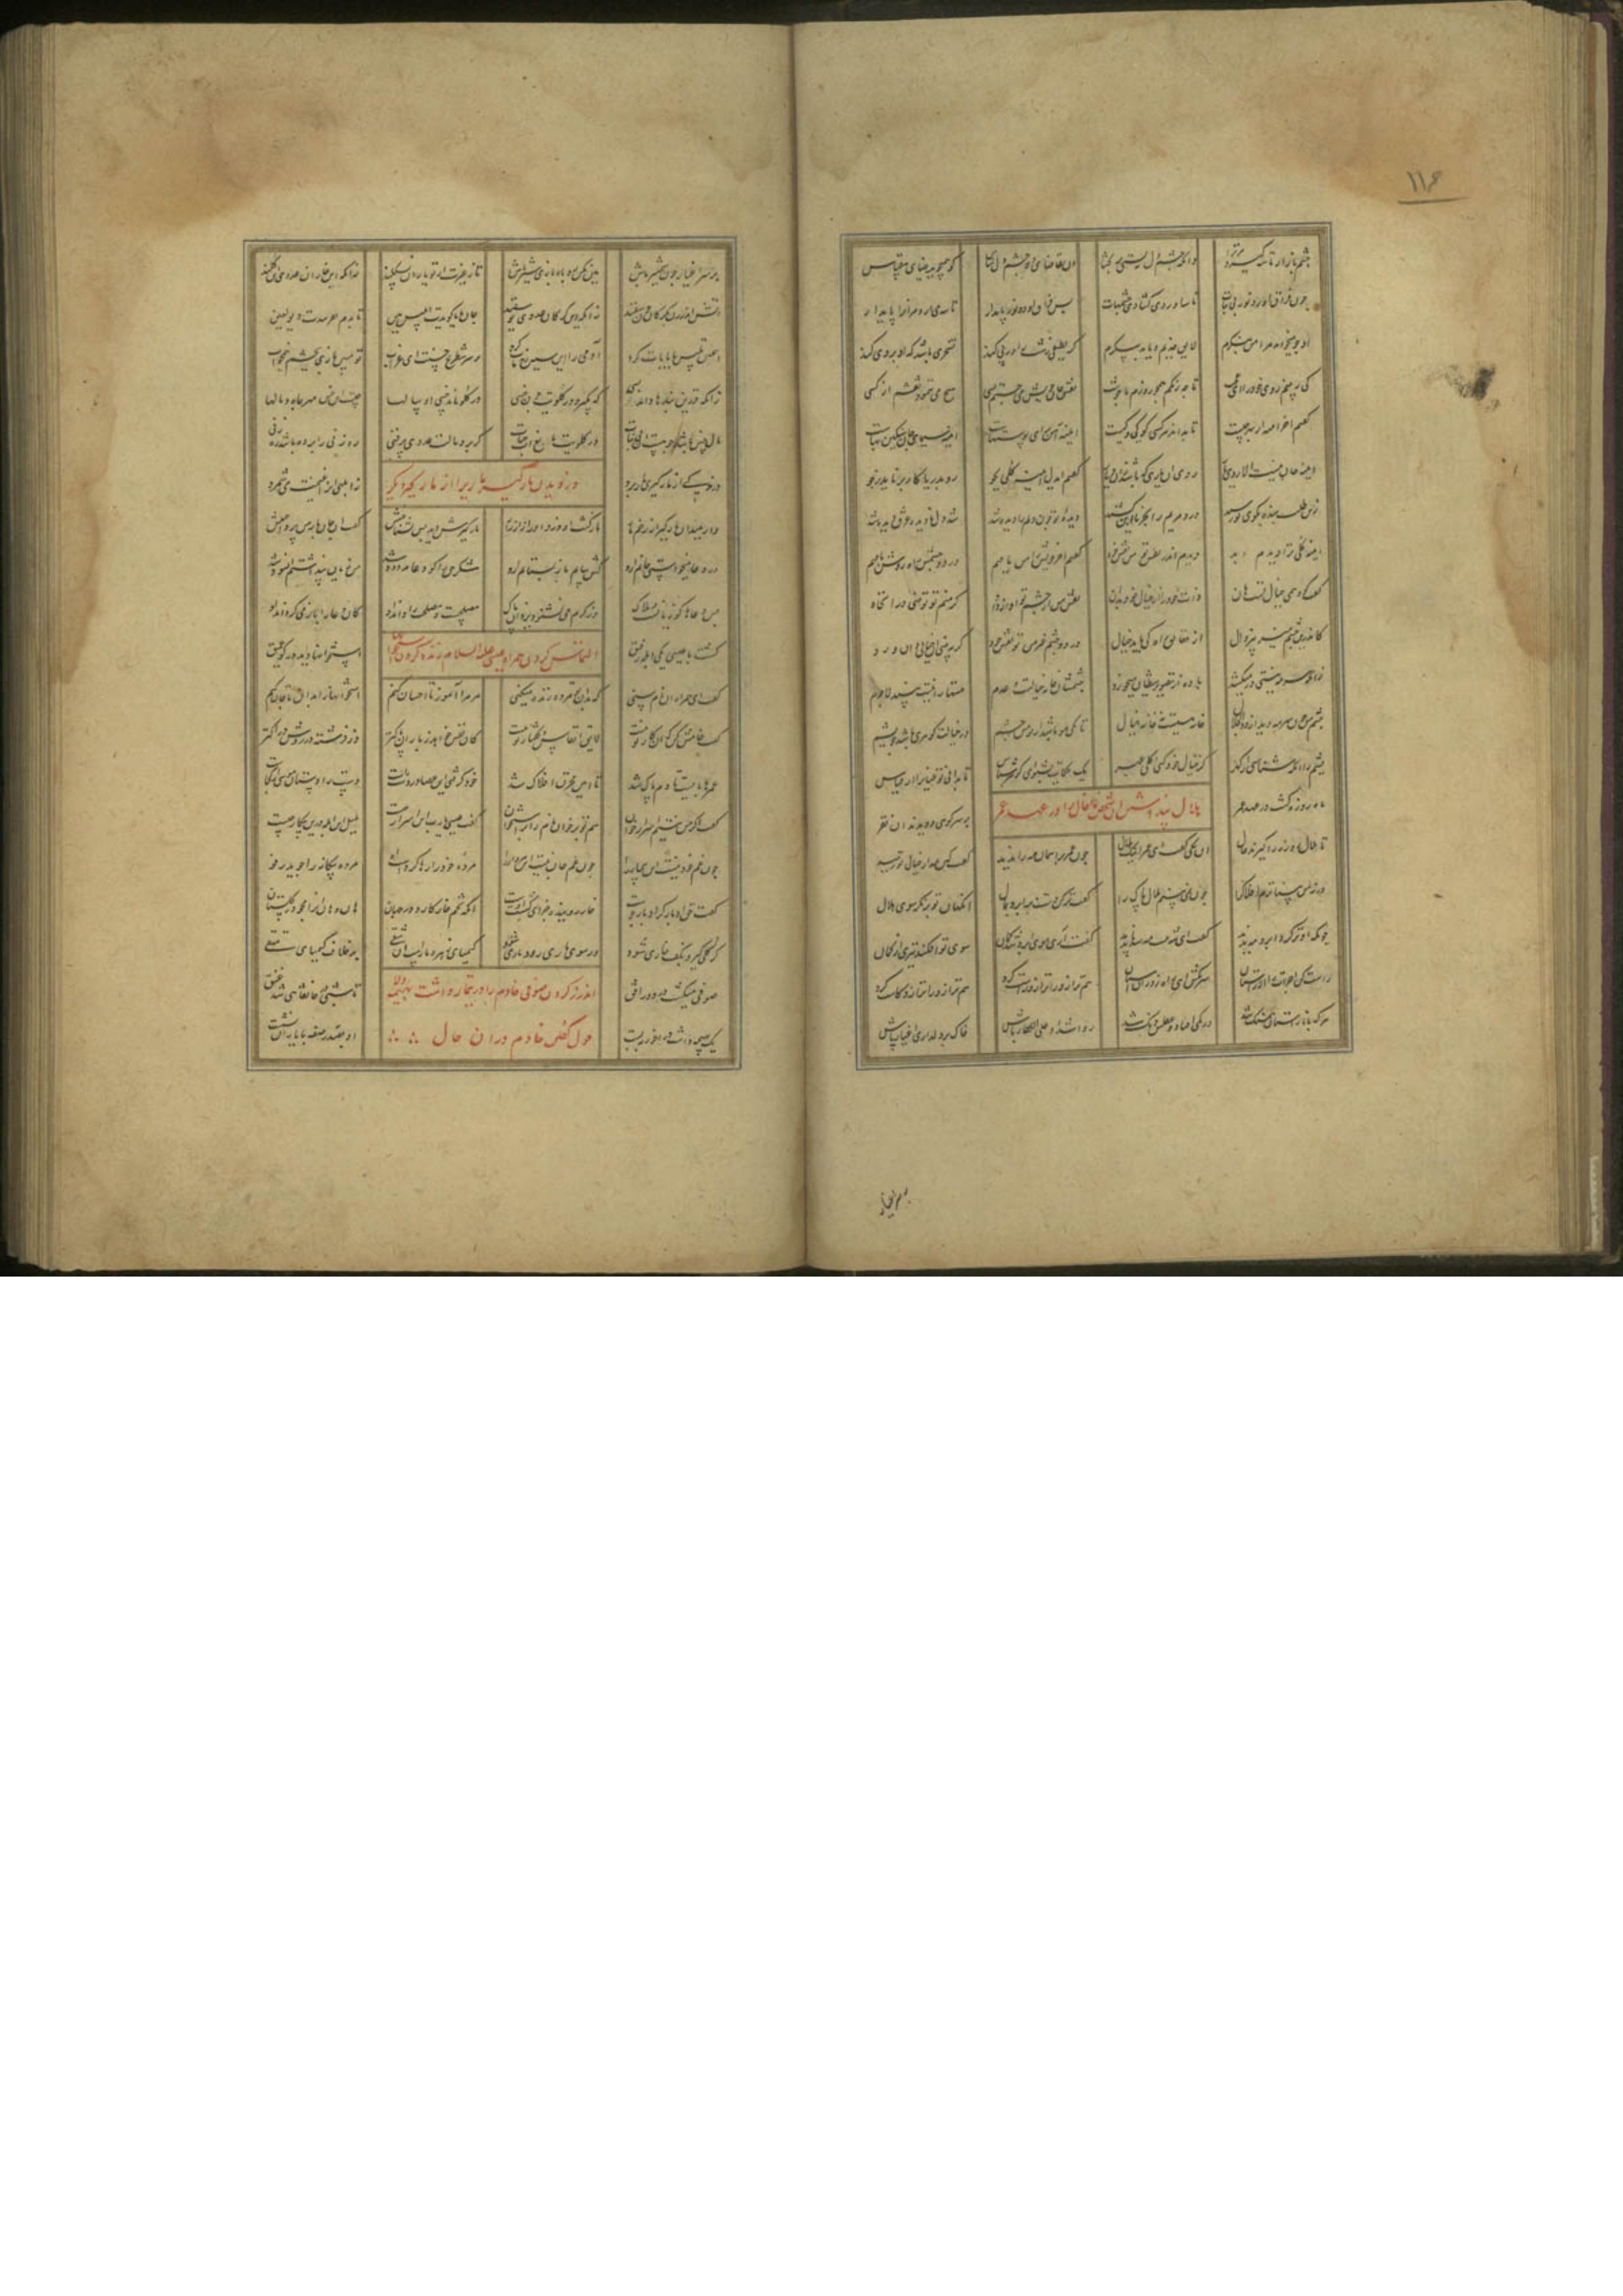 چشم باز ار تاسه گیرد مر ترا دانکه چشم دل ببستی بر گشا آن تقاضای دو چشم دل شناس کو همی جوید ضیای بی قیاس
چون فراق آن دو نور بی ثبات تاسه آوردی گشادی چشمهات پس فراق آن دو نور پایدار تاسه می آرد مر آنرا پای دار
او چو میخواند مرا من بنگرم لایق جذبم و یا بد پیکرم گر لطیفی زشت را در پی کند تسخری باشد که او بر وی کند
کی ببینم روی خود را ای عجب تا چه رنگم همچو روزم یا چو شب نقش جان خویش می جستم بسی هیچ می ننمود نقشم از کسی
گفتم آخر آینه از بهر چیست تا بداند هر کسی کو کیست آینه آهن برای پوستهاست آینه سیمای جان سنگین بهاست
آینه جان نیست الا روی یار روی آن یاری که باشد زان دیار گفتم ای دل آینه کلی بجو رو بدریا کار بر ناید بجو
زین طلب بنده بکوی تو رسید درد مریم را بخرمابن کشید دیده تو چون دلم را دیده شد شد دل نادیده غرق دیده شد
آینه کلی ترا دیدم ابد دیدم اندر چشم تو من نقش خود گفتم آخر خویش را من یافتم در دو چشمش راه روشن یافتم
گفت وهمم کان خیال تست هان ذات خود را از خیال خود بدان نقش من از چشم تو آواز داد که منم تو تو منی در اتحاد
کاندرین چشم منیر بی زوال از حقایق راه کی یابد خیال در دو چشم غیر من تو نقش خود گر ببینی آن خیالی دان و رد
زانکه سرمه نیستی در میکشد باده از تصویر شیطان میچشد چشمشان خانه خیالست و عدم نیستها را هست بیند لاجرم
چشم من چون سرمه دید از ذوالجلال خانه هستیست نه خانه خیال تا یکی مو باشد از تو پیش چشم در خیالت گوهری باشد چو یشم
یشم را آنگه شناسی از گهر کز خیال خود کنی کلی عبر یک حکایت بشنو ای گوهر شناس تا بدانی تو عیان را از قیاس
هلال پنداشتن آن شخص خیال را در عهد عمر
ماه روزه گشت در عهد عمر بر سر کوهی دویدند آن نفر
تا هلال روزه را گیرند فال آن یکی گفت ای عمر اینک هلال چون عمر بر آسمان مه را ندید گفت کین مه از خیال تو دمید
ورنه من بیناترم افلاک را چون نمی بینم هلال پاک را گفت تر کن دست و بر ابرو بمال آنگهان تو بر نگر سوی هلال
چونکه او تر کرد ابرو مه ندید گفت ای شه نیست مه شد ناپدید گفت آری موی ابرو شد کمان سوی تو افکند تیری از گمان
راست کن اجزات را از راستان سر مکش ای راست رو زان آستان هم ترازو را ترازو راست کرد هم ترازو را ترازو کاست کرد
هر که با ناراستان همسنگ شد در کمی افتاد و عقلش دنگ شد رو اشداء علی الکفار باش خاک بر دلداری اغیار پاش
بر سر اغیار
۱۱۶
بر سر اغیار چون شمشیر باش هین مکن روباه بازی شیر باش تا ز غیرت از تو یاران نسکلند زانکه این خاران عدوی این گلند
جان بابا گویدت ابلیس هین تا بدم بفریبدت دیو لعین
این چنین تلبیس با بابات کرد آدمی را این سیه رخ مات کرد بر سر شطرنج چستست این غراب تو مبین بازی بچشم نیمخواب
زانکه فرزین بندها داند بسی که بگیرد در گلویت چون خسی در گلو ماند خس او سالها چیست آن خس مهر جاه و مالها
مال خس باشد چو هست ای بی ثبات در گلویت مانع آب حیات گر برد مالت عدوی پر فنی ره زنی را برده باشد ره زنی
دزدیدن مارگیر ماری را از مارگیر دیگر
دزدکی از مارگیری مار برد ز ابلهی آنرا غنیمت می شمرد
وا رهید آن مارگیر از زخم مار مار کشت آن دزد او را زار زار مارگیرش دید پس بشناختش گفت از جان مار من پرداختش
در دعا میخواستی جانم ازو کش بیابم مار بستانم ازو شکر حق را کان دعا مردود شد من زیان پنداشتم آن سود شد
بس دعاها کان زیانست و هلاک وز کرم می نشنود یزدان پاک
التماس کردن همراه عیسی علیه السلام زنده کردن استخوانها
گشت با عیسی یکی ابله رفیق استخوانها دید در حفره عمیق
گفت ای همراه آن نام سنی که بدان تو مرده زنده میکنی مر مرا آموز تا احسان کنم استخوانها را بدان با جان کنم
گفت خامش کن که آن کار تو نیست لایق انفاس و گفتار تو نیست کان نفس خواهد ز باران پاکتر وز فرشته در روش دراکتر
عمرها بایست تا دم پاک شد تا امین مخزن افلاک شد خود گرفتی این عصا در دست راست دست را دستان موسی از کجاست
گفت اگر من نیستم اسرار خوان هم تو بر خوان نام را بر استخوان گفت عیسی یا رب این اسرار چیست میل این ابله درین بیگار چیست
چون غم خود نیست این بیمار را چون غم جان نیست این مردار را مرده خود را رها کردست او مرده بیگانه را جوید رفو
گفت حق ادبار گر ادبار جوست خار روییده جزای کشت اوست آنکه تخم خار کارد در جهان هان و هان او را مجو در گلستان
گر گلی گیرد بکف خاری شود ور سوی یاری رود ماری شود کیمیای زهر و مارست آن شقی بر خلاف کیمیای متقی
اندرز کردن صوفی خادم را در تیمار داشت بهیمه و لا حول گفتن خادم در آن حال
صوفی میگشت در دور افق تا شبی در خانقاهی شد قنق
یک بهیمه داشت در آخر ببست او بصدر صفه با یاران نشست